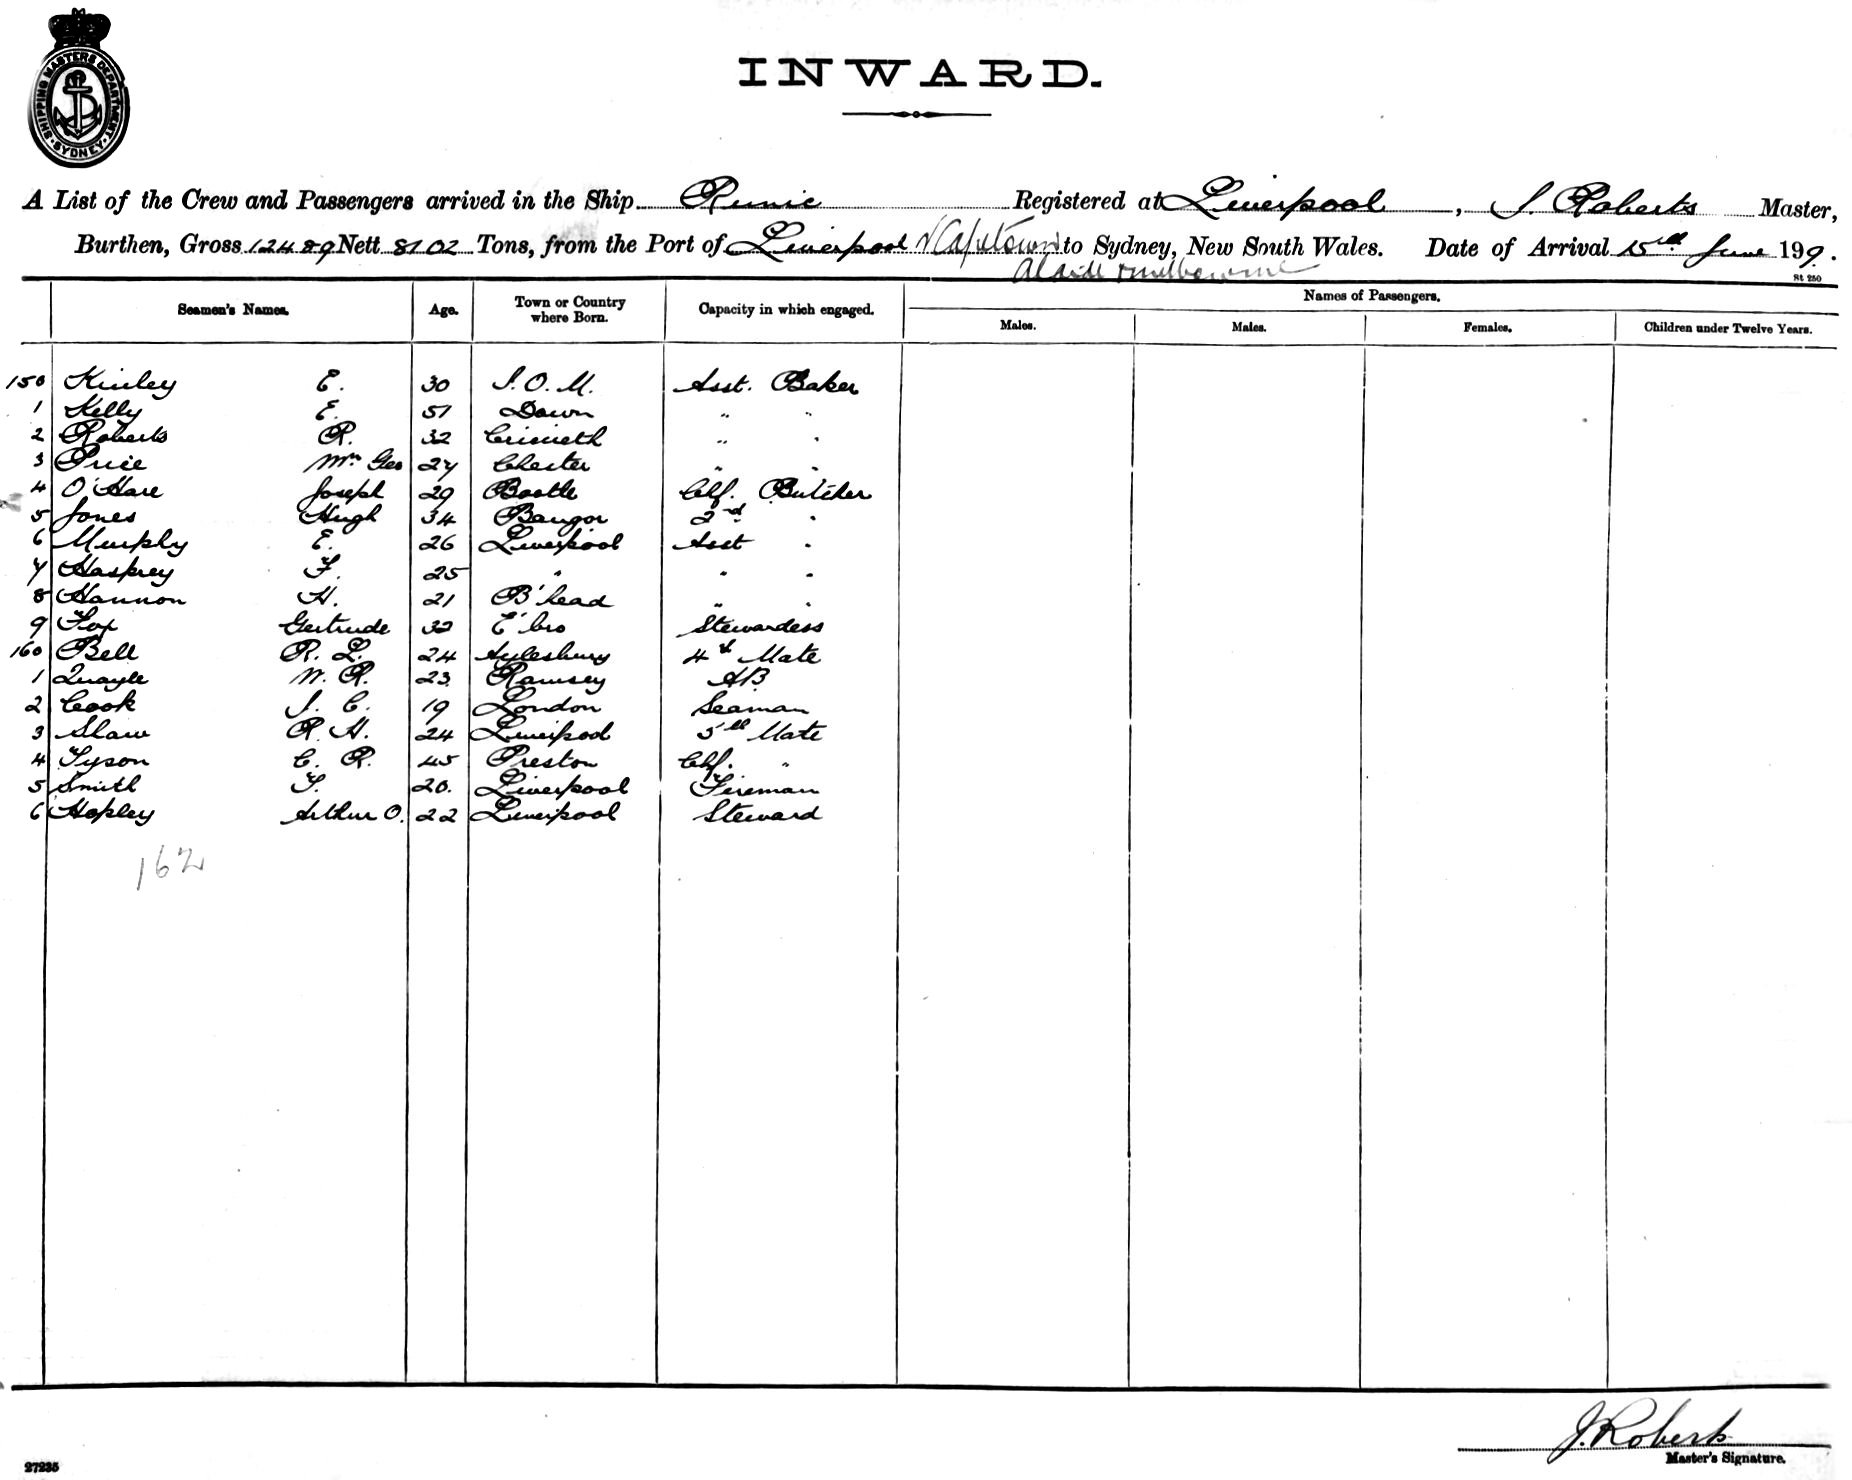 SHIPPING MASTERS DEPARTMENT SYDNEY
INWARD.
A List of the Crew and Passengers arrived in the Ship Runic Registered at Liverpool, J. Roberts Master,
Burthen, Gross 12489 Nett 8102 Tons, from the Port of Liverpool Capetown to Sydney, New South Wales. Date of Arrival 15th June 199.
Melbourne
St 250
Seamen's Names. Age. Town or Country where Born. Capacity in which engaged. Names of Passengers.
Males. Males. Females. Children under Twelve Years.
150 Kinley E. 30 I.O.M. Asst. Baker
1 Kelly E. 51 Down " "
2 Roberts R. 32 Cricieth " "
3 Price Wm Geo 27 Chester " "
4 O'Hare Joseph 29 Bootle Chf. Butcher
5 Jones Hugh 34 Bangor 2nd "
6 Murphy E. 26 Liverpool Asst "
7 Hasprey F. 25 " " "
8 Hannon H. 21 B'head " "
9 Fox Gertrude 32 E'bro Stewardess
160 Bell R. L. 24 Aylesbury 4th Mate
1 Quayle W. R. 23 Ramsey AB
2 Cook J. C. 19 London Seaman
3 Shaw R. H. 24 Liverpool 5th Mate
4 Tyson C. R. 45 Preston Chf. "
5 Smith F. 20. Liverpool Fireman
6 Hopley Arthur O. 22 Liverpool Steward
162
J. Roberts
Master's Signature.
27235